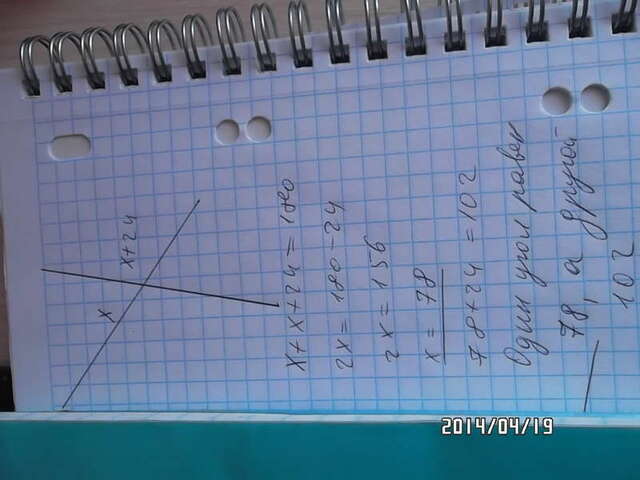 x
x+24
x+x+24=180
2x=180-24
2x=156
x=78
78+24=102
Один угол равен
78, а другой
102
2014/04/19